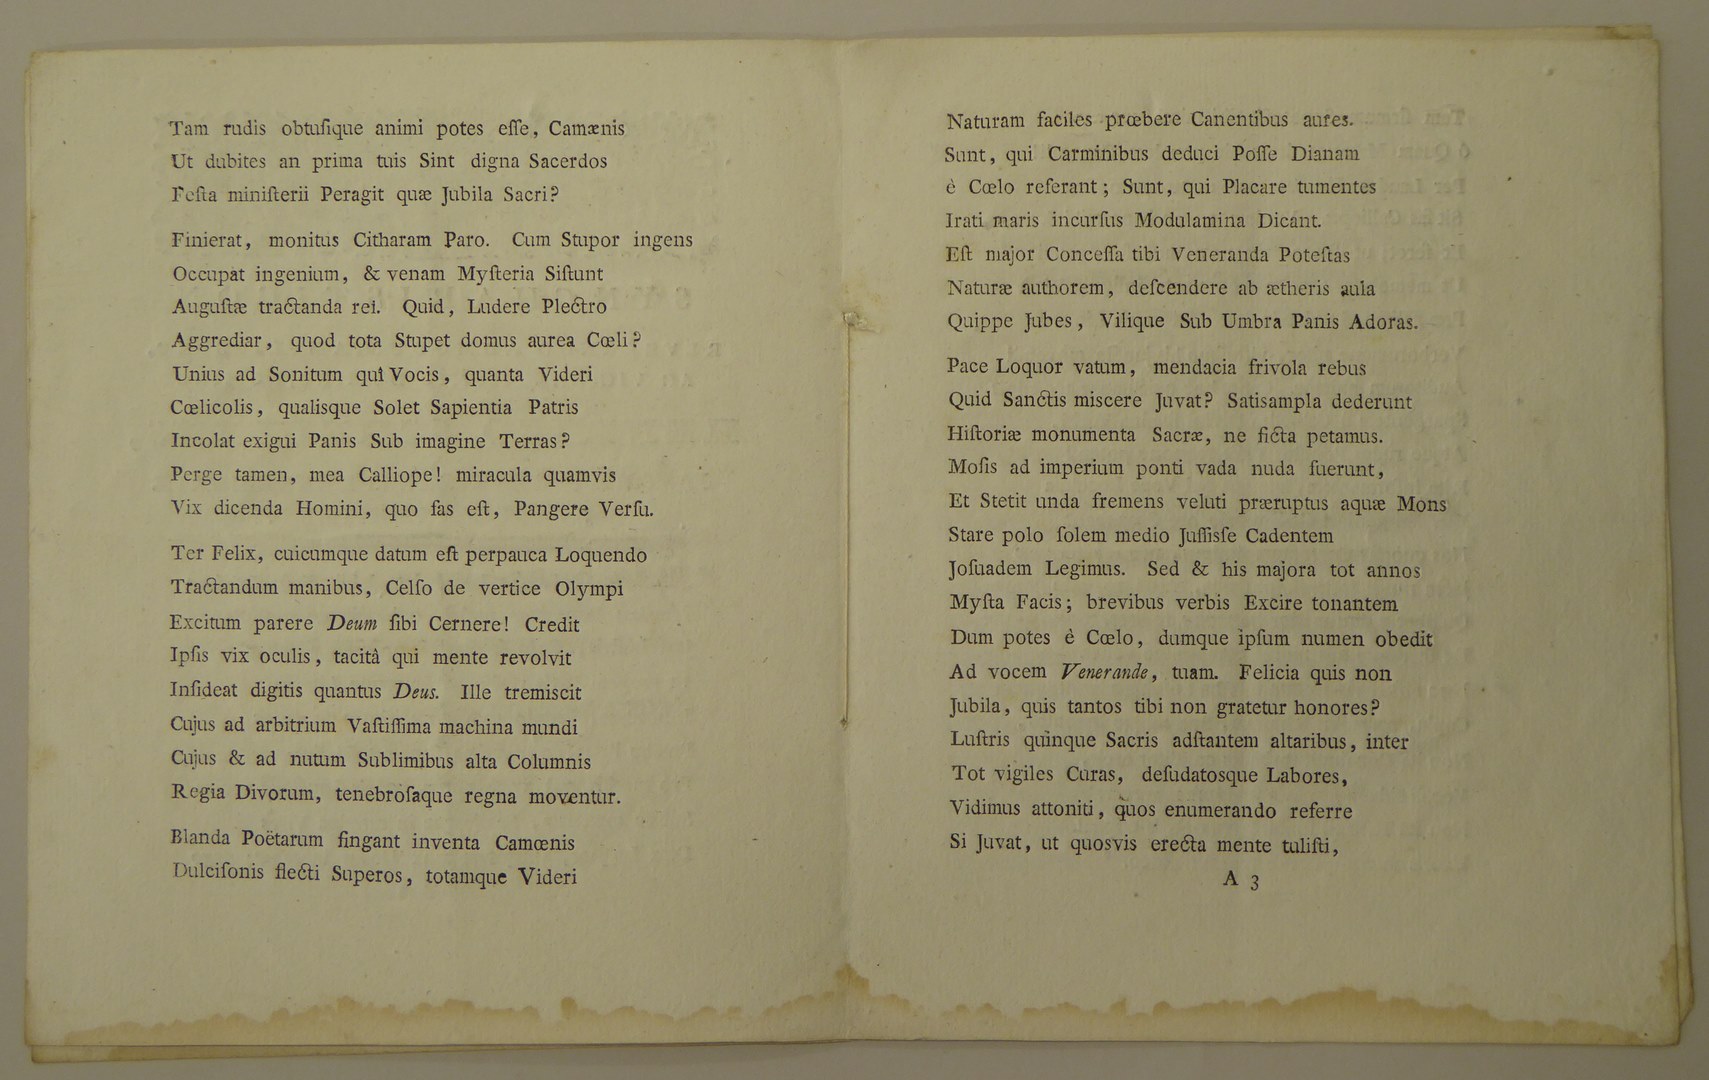 Tam rudis obtuſique animi potes eſſe, Camænis
Ut dubites an prima tuis Sint digna Sacerdos
Feſta miniſterii Peragit quæ Jubila Sacri?
Finierat, monitus Citharam Paro. Cum Stupor ingens
Occupat ingenium, & venam Myſteria Siſtunt
Auguſtæ tractanda rei. Quid, Ludere Plectro
Aggrediar, quod tota Stupet domus aurea Cœli?
Unius ad Sonitum quî Vocis, quanta Videri
Cœlicolis, qualisque Solet Sapientia Patris
Incolat exigui Panis Sub imagine Terras?
Perge tamen, mea Calliope! miracula quamvis
Vix dicenda Homini, quo fas eſt, Pangere Verſu.
Ter Felix, cuicumque datum eſt perpauca Loquendo
Tractandum manibus, Celſo de vertice Olympi
Excitum parere Deum ſibi Cernere! Credit
Ipſis vix oculis, tacitâ qui mente revolvit
Inſideat digitis quantus Deus. Ille tremiscit
Cujus ad arbitrium Vaſtiſſima machina mundi
Cujus & ad nutum Sublimibus alta Columnis
Regia Divorum, tenebroſaque regna moventur.
Blanda Poëtarum fingant inventa Camœnis
Dulciſonis flecti Superos, totamque Videri
Naturam faciles prœbere Canentibus aures.
Sunt, qui Carminibus deduci Poſſe Dianam
è Cœlo referant; Sunt, qui Placare tumentes
Irati maris incurſus Modulamina Dicant.
Eſt major Conceſſa tibi Veneranda Poteſtas
Naturæ authorem, deſcendere ab ætheris aula
Quippe Jubes, Vilique Sub Umbra Panis Adoras.
Pace Loquor vatum, mendacia frivola rebus
Quid Sanctis miscere Juvat? Satisampla dederunt
Hiſtoriæ monumenta Sacræ, ne ficta petamus.
Moſis ad imperium ponti vada nuda fuerunt,
Et Stetit unda fremens veluti præruptus aquæ Mons
Stare polo ſolem medio Juſſisſe Cadentem
Joſuadem Legimus. Sed & his majora tot annos
Myſta Facis; brevibus verbis Excire tonantem
Dum potes è Cœlo, dumque ipſum numen obedit
Ad vocem Venerande, tuam. Felicia quis non
Jubila, quis tantos tibi non gratetur honores?
Luſtris quinque Sacris adſtantem altaribus, inter
Tot vigiles Curas, deſudatosque Labores,
Vidimus attoniti, quos enumerando referre
Si Juvat, ut quosvis erecta mente tuliſti,
A 3